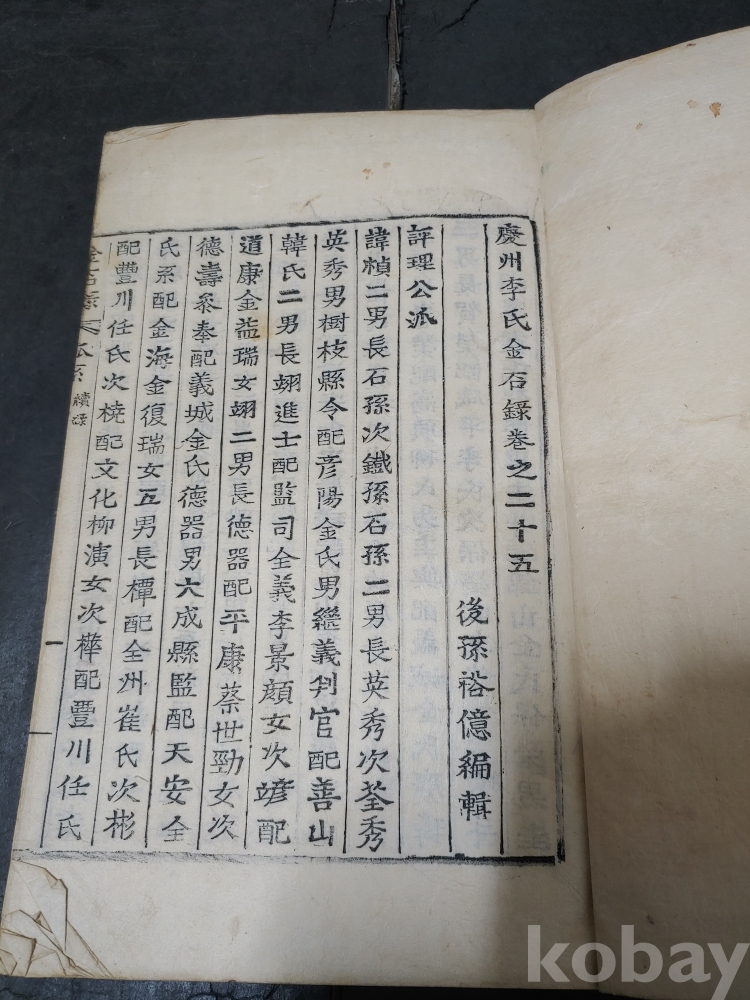 慶州李氏金石錄卷之二十五
後孫裕億編輯
評理公派
諱楨二男長石孫次鐵孫石孫二男長英秀次荃秀
英秀男樹枝縣令配彦陽金氏男繼義判官配善山
韓氏二男長翊進士配監司全義李景顔女次㜝配
道康金益瑞女翊二男長德器配平康蔡世勁女次
德壽叅奉配義城金氏德器男大成縣監配天安全
氏系配金海金復瑞女五男長橝配全州崔氏次彬
配豐川任氏次橈配文化柳演女次樺配豐川任氏
金石錄 派系 續錄
一
kobay